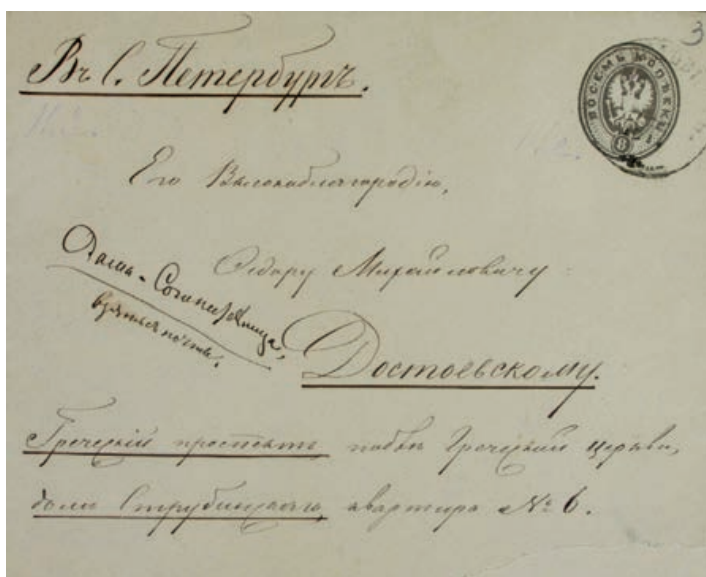 3
Въ С. Петербургъ.
ВОСЕМЬ КОПѢЕКЪ
8
Его Высокоблагородію,
Ѳедору Михайловичу
Достоевскому.
Греческій проспектъ, подлѣ Греческой церкви,
домъ Струбинскаго, квартира № 6.